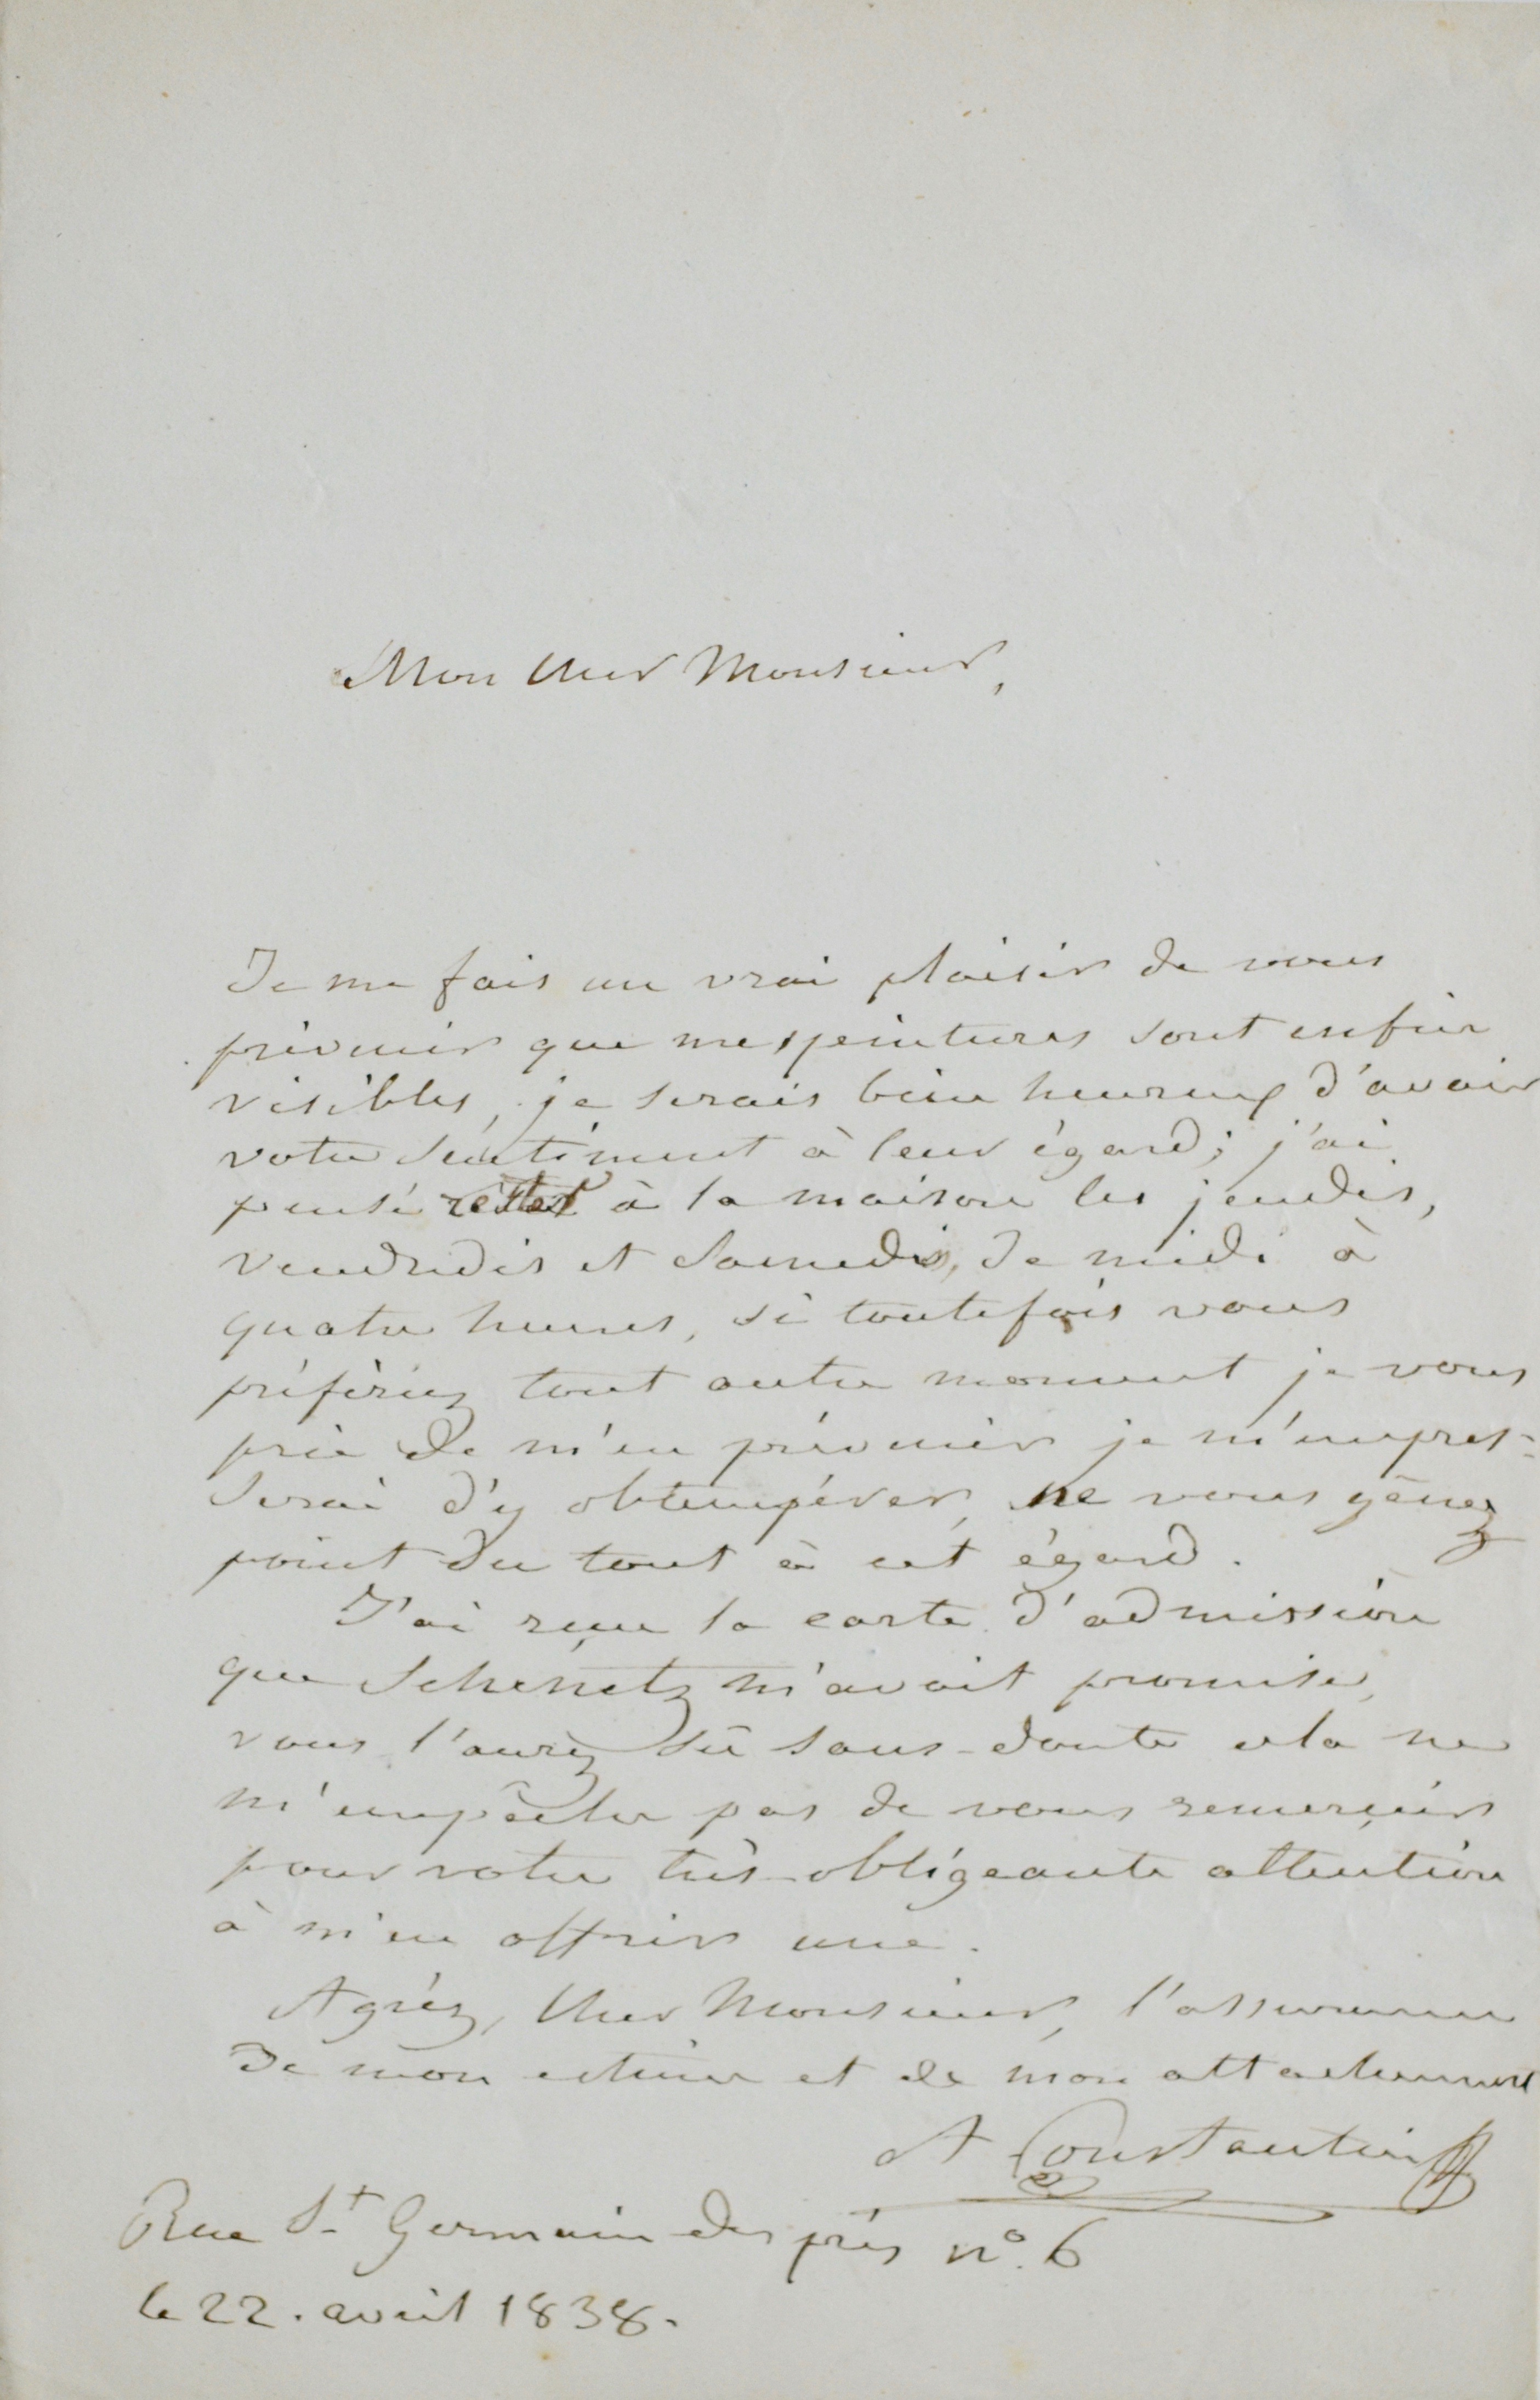 Mon cher Monsieur,
Je me fais un vrai plaisir de vous
prévenir que mes peintures sont enfin
visibles, je serais bien heureux d'avoir
votre sentiment à leur égard; j'ai
pensé rester à la maison les jeudis,
vendredis et samedis, de midi à
quatre heures, si toutefois vous
préfèriez tout autre moment je vous
prie de m'en prévenir je m'empres-
serai d'y obtempérer, ne vous gênez
point du tout à cet égard.
J'ai reçu la carte d'admission
que Schenetz m'avait promise,
vous l'aurez sû sans-doute cela ne
m'empêche pas de vous remerçier
pour votre très-obligeante attention
à m'en offrir une.
Agréez, cher Monsieur, l'assurance
de mon estime et de mon attachement
A Constantin
Rue St Germain des près no. 6
le 22. avril 1838.